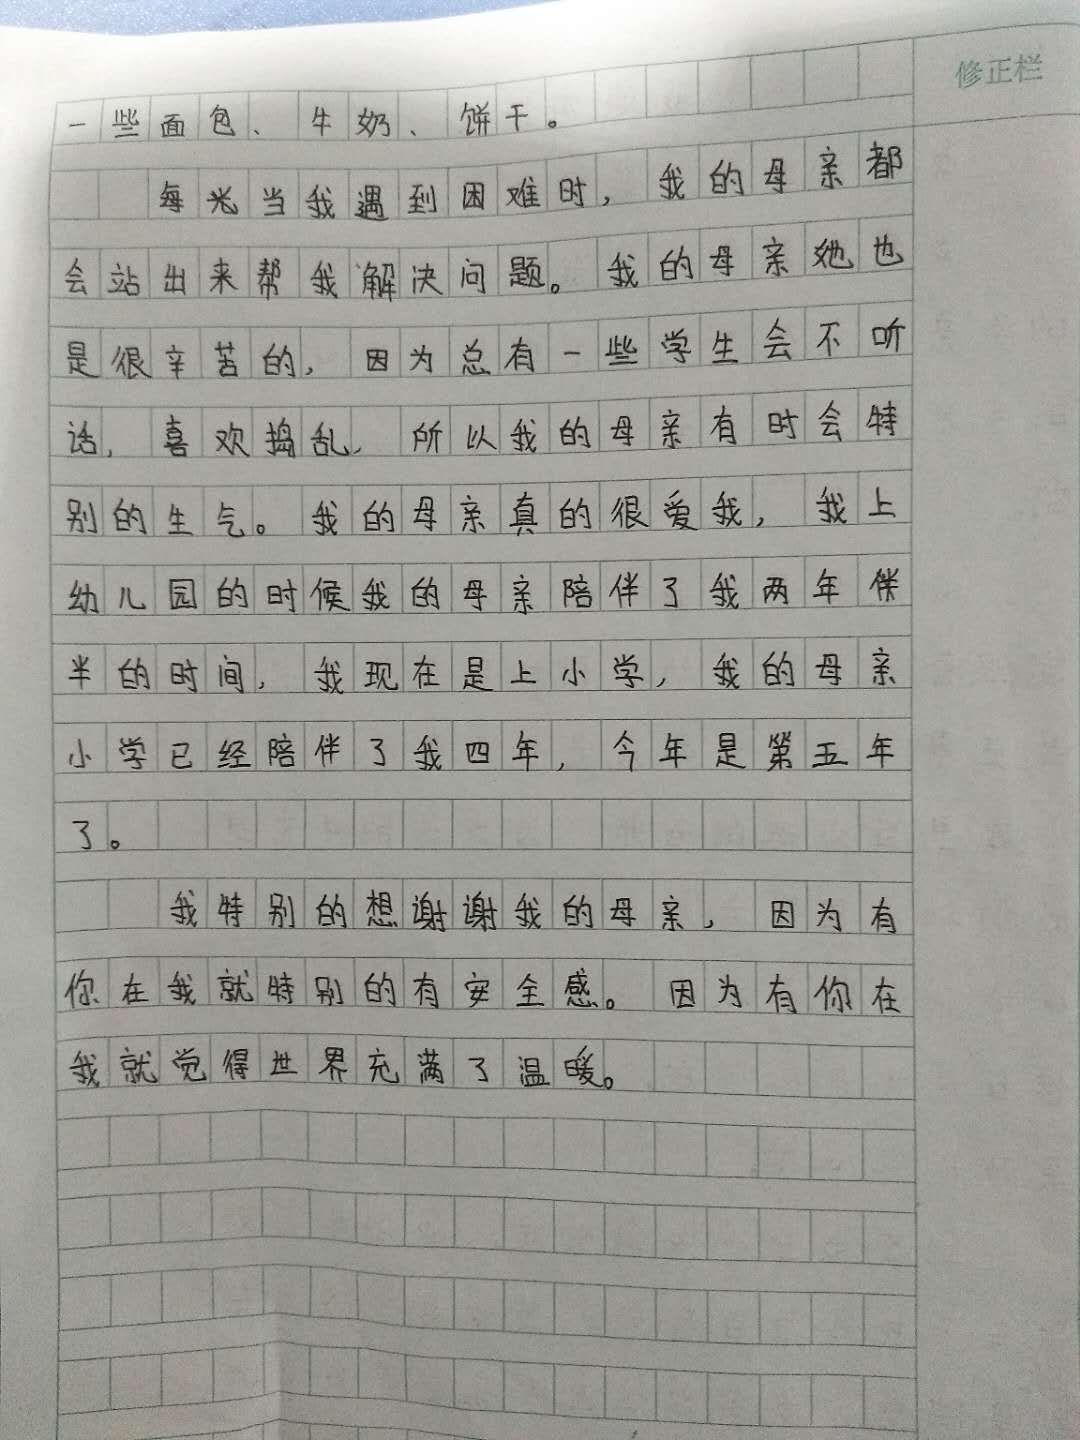 修正栏
一些面包、牛奶、饼干。
每当我遇到困难时，我的母亲都
会站出来帮我解决问题。我的母亲她也
是很辛苦的，因为总有一些学生会不听
话，喜欢捣乱，所以我的母亲有时会特
别的生气。我的母亲真的很爱我，我上
幼儿园的时候我的母亲陪伴了我两年
半的时间，我现在是上小学，我的母亲
小学已经陪伴了我四年，今年是第五年
了。
我特别的想谢谢我的母亲，因为有
你在我就特别的有安全感。因为有你在
我就觉得世界充满了温暖。